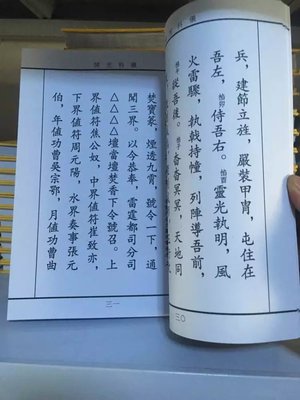 兵，建節立旌，嚴裝甲冑，屯住在
吾左，恰卯侍吾右。恰酉靈光執明，風
火雷驟，執戟持幢，列陣導吾前，
恰午從吾後。恰子杳杳冥冥，天地同
三〇
開光科儀
焚寶篆，煙透九霄，號令一下，通
聞三界。以今恭奉，雷霆都司分司
△△△△壇當壇焚香下令號召。上
界值符焦公奴，中界值符崔致亦，
下界值符周元陽，水界奏事張元
伯，年值功曹吳宗鄂，月值功曹曲
三一